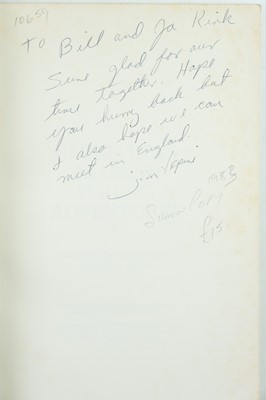 10659
To Bill and Jo Kirk
Sure glad for our
time together. Hope
you hurry back but
I also hope we can
meet in England.
Jim
1983
Signed Copy
£15